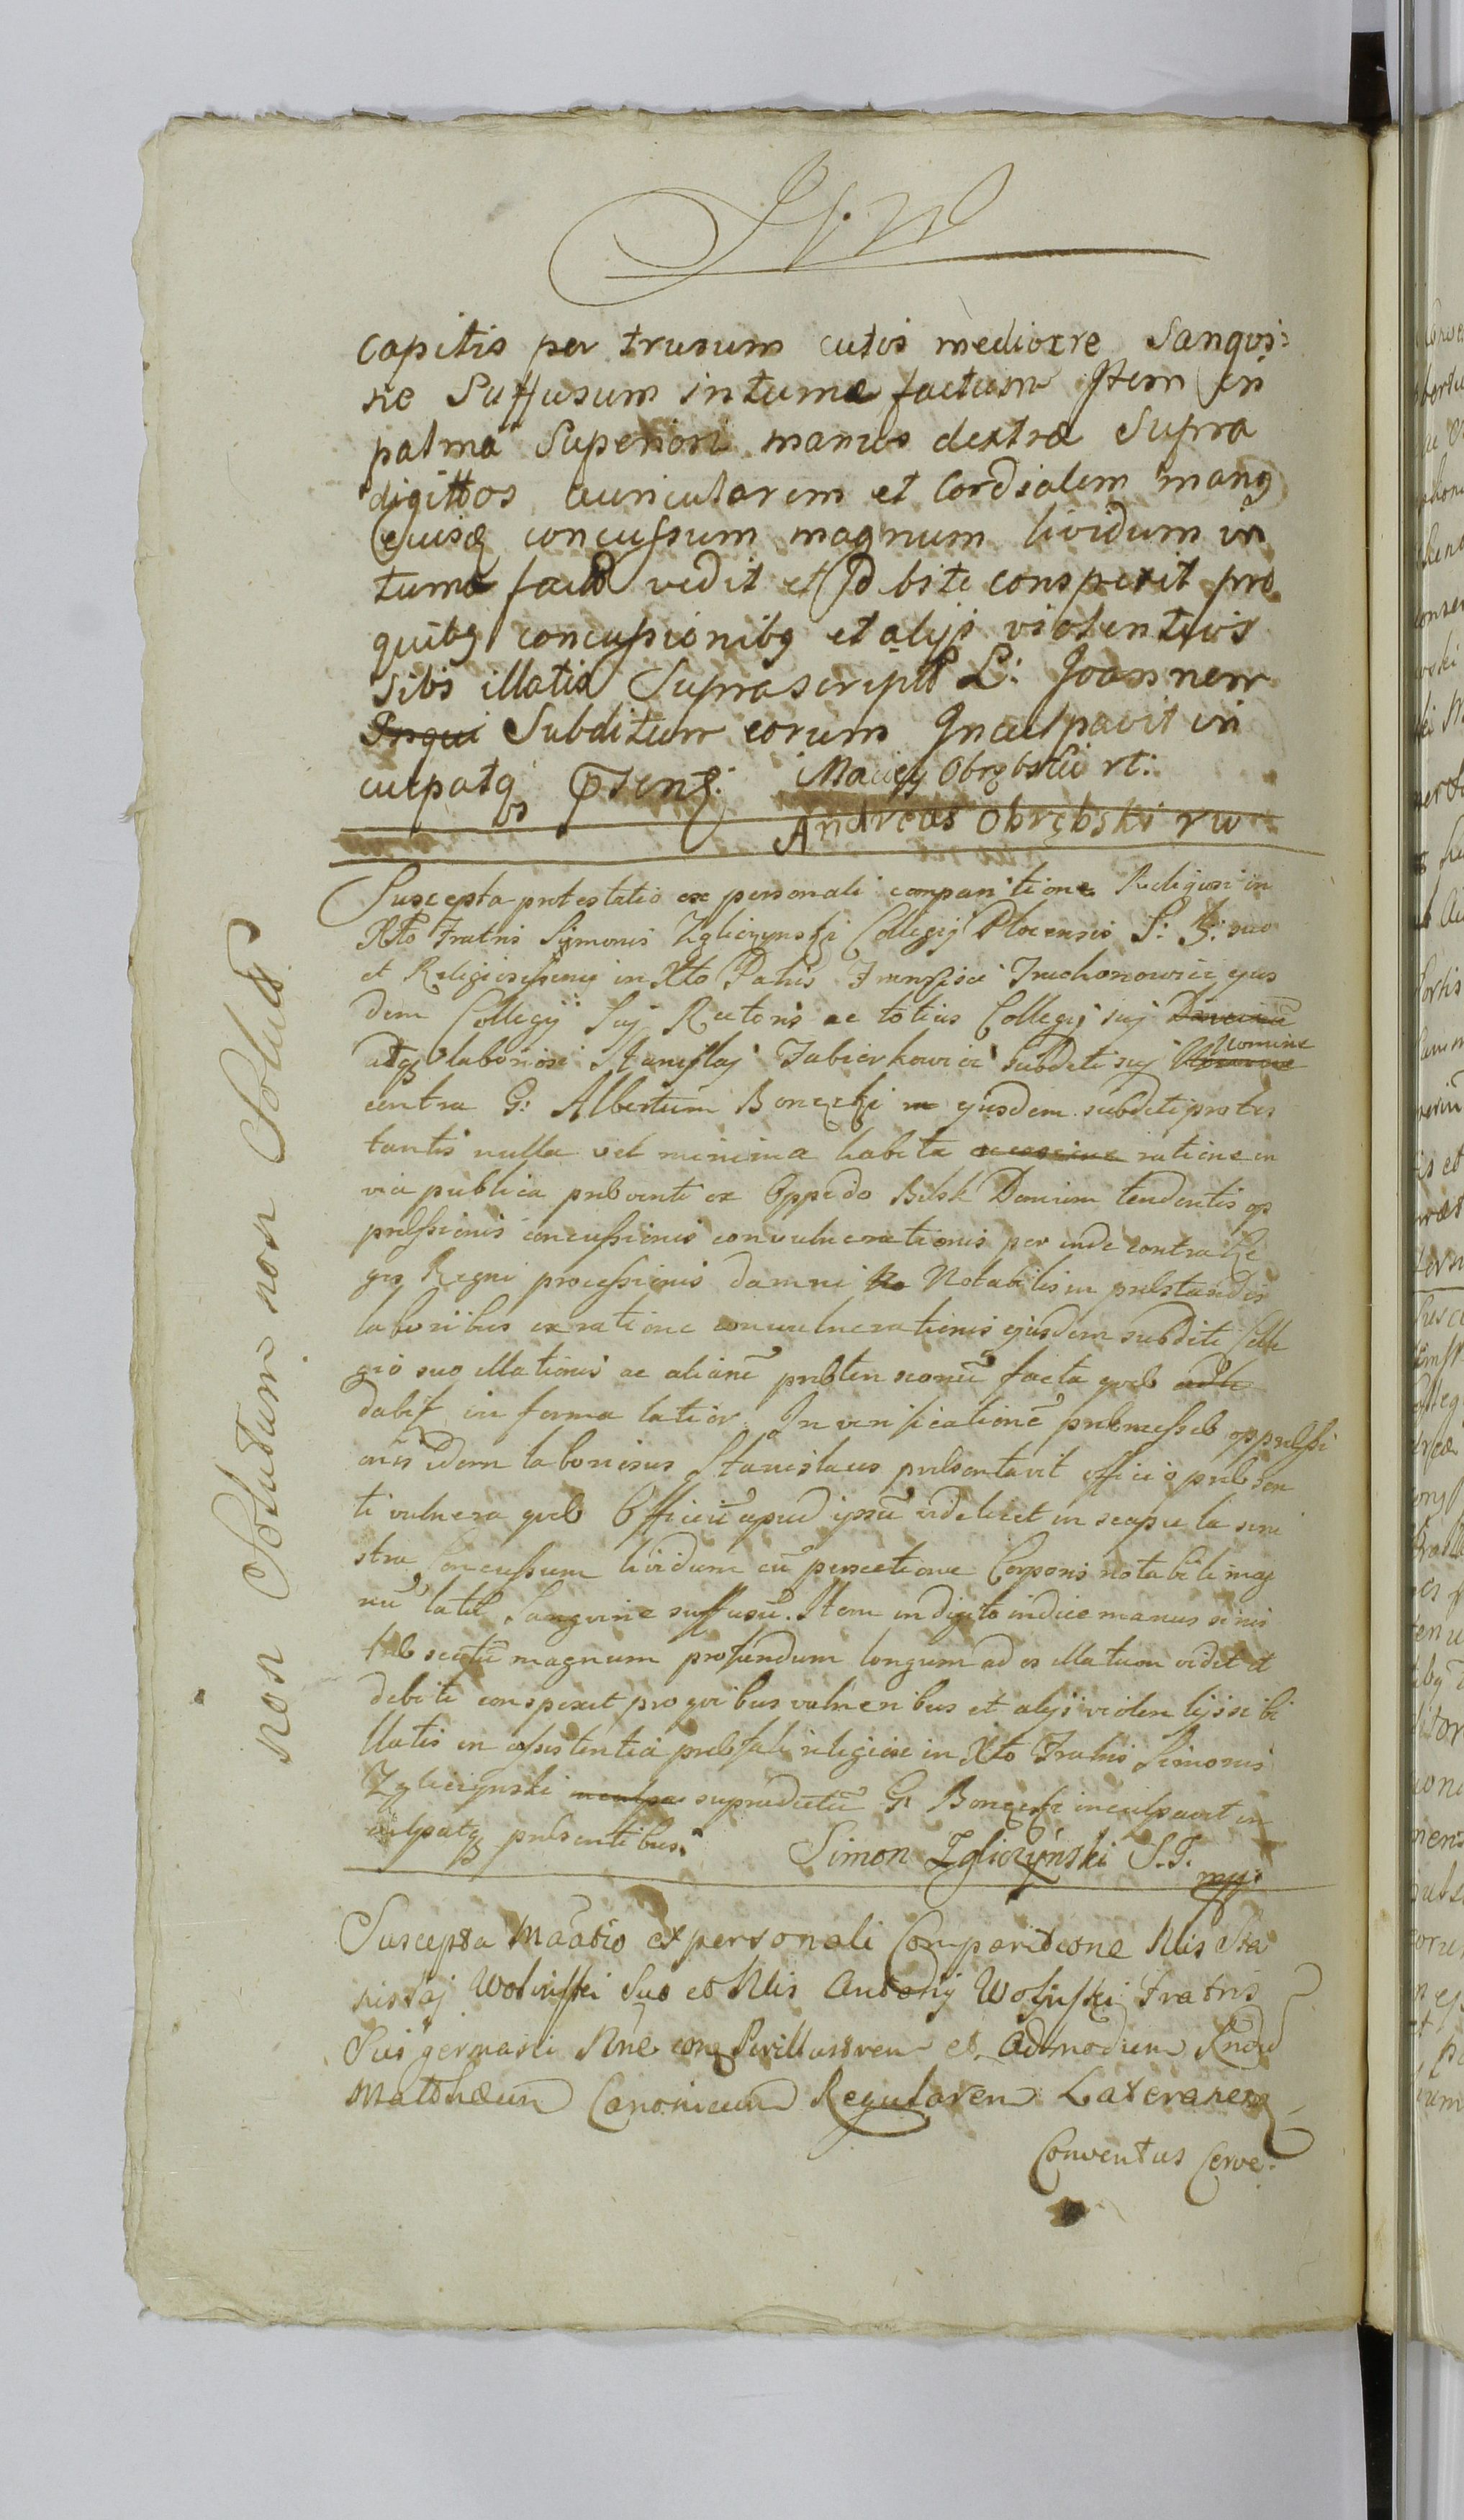 capitis per trusum cutis mediocre Sangvi-
ne Suffusum intumæ factum Item in
palma Superiori manus dextræ Supra
digittos auricularem et Cordialem manq
ejusq concussum magnum lividum in
tumæ fact vidit et Debite conspexit pro
quibq concussionibq et alijs violentijs
Sibi illatis Suprascript L: Joannem
Subditum eorum Inculpavit in
culpatq psent: Maciey Obrębski rt:
Andreas Obrębski rw
Suscepta protestatio ex personali comparitione Religiosi in
Xto Fratris Symonis Zgliczynski Collegij Plocensis S: J: suo
et Religiosissimi in Xto Patris Francisci Truchonowicz ejus
dem Collegij Sui Rectoris ac totius Collegij sui
Nomine
atq laboriosi Stanislaj Fabierkowicz subditi sui
contra G: Albertum Boneçki ejusdem subditi protes
tantis nulla vel minima habita ratione in
via publica præventi ex Oppido Bilsk Domum tendentis op
pressionis concussionis convulnerationis per inde contra Le
ges Regni processionis damni Notabilis in præstandis
laboribus ex ratione convulnerationis ejusdem subditi Colle
gio suo illationis ac aliarũ prætensionũ facta quæ
dabit in forma latior. In verificationẽ præmissæ oppressi
onis idem laboriosus Stanislaus præsentavit officio præsen
ti vulnera quæ Officiũ apud ipsũ videlicet in scapula sini
stra Concussum lividum cũ persectione Corporis notabili mag
nũ latũ Sangvine suffusũ. Item in digito indice manus sinis
træ sectũ magnum profundum longum ad os illatum vidit et
debite conspexit pro quibus vulneribus et alijs violentijs sibi
illatis in assistentia præfati religiosi in Xto Fratris Simonis
Zgliczynski supradictũ G: Boneçki inculpavit in
culpatq præsentibus. Simon Zgliczÿnski S.J.
mp:
Suscepta Maãtio ex personali Comparitione Nlis Sta
nislaj Wolinski Suo et Nlis Antonij Wolinski Fratris
Sui germani Nne con Perillustrem et Admodum Rndũ
Matthæum Canonicum Regularem Lateranen
Conventus Cerve:
non Solutum non Solut